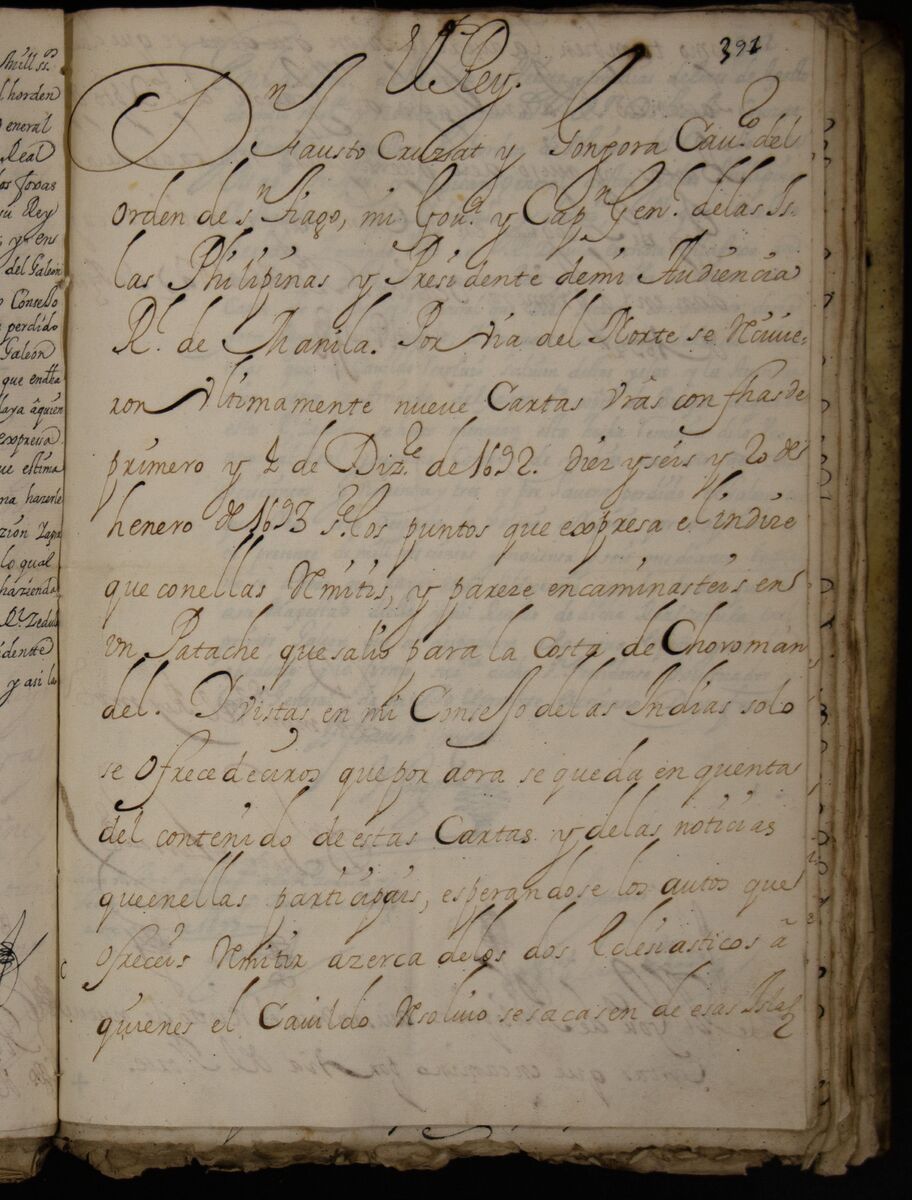 mill ss.
l horden
eneral
Real
las Joyas
su Rey
, y en
del Galeon
Consejo
perdido
Galeon
que
laya aquien
expresa
ue estima
na hazerle
zion
lo qual
hazienda
Rl. Zedula
idente
y asi la
391
El Rey.
Dn Fausto Cruzat y Gongora Cavo. del
orden de sn. tiago, mi Govor. y Capn Genl. delas Is-
las Philipinas y Presidente demi Audiencia
Rl. de Manila. Por via del Norte se Reciuie-
ron vltimamente nueve Cartas vras con fhas de
primero y 2 de Dize. de 1692. diez yseis y 20 de
henero de 1693 sre. los puntos que expresa el indize
que conellas Remitis, y pareze encaminasteis en
vn Patache quesalio para la Costa de Choroman
del. Y vistas en mi Consejo delas Indias solo
se ofrecedeciros que por aora se queda en quenta
del contenido de estas Cartas y delas noticias
queenellas participais, esperandose los autos que
ofreceis Remitir azerca delos dos Eclesiasticos â
quienes el Cavildo Resolvio sesacasen de esas Islas